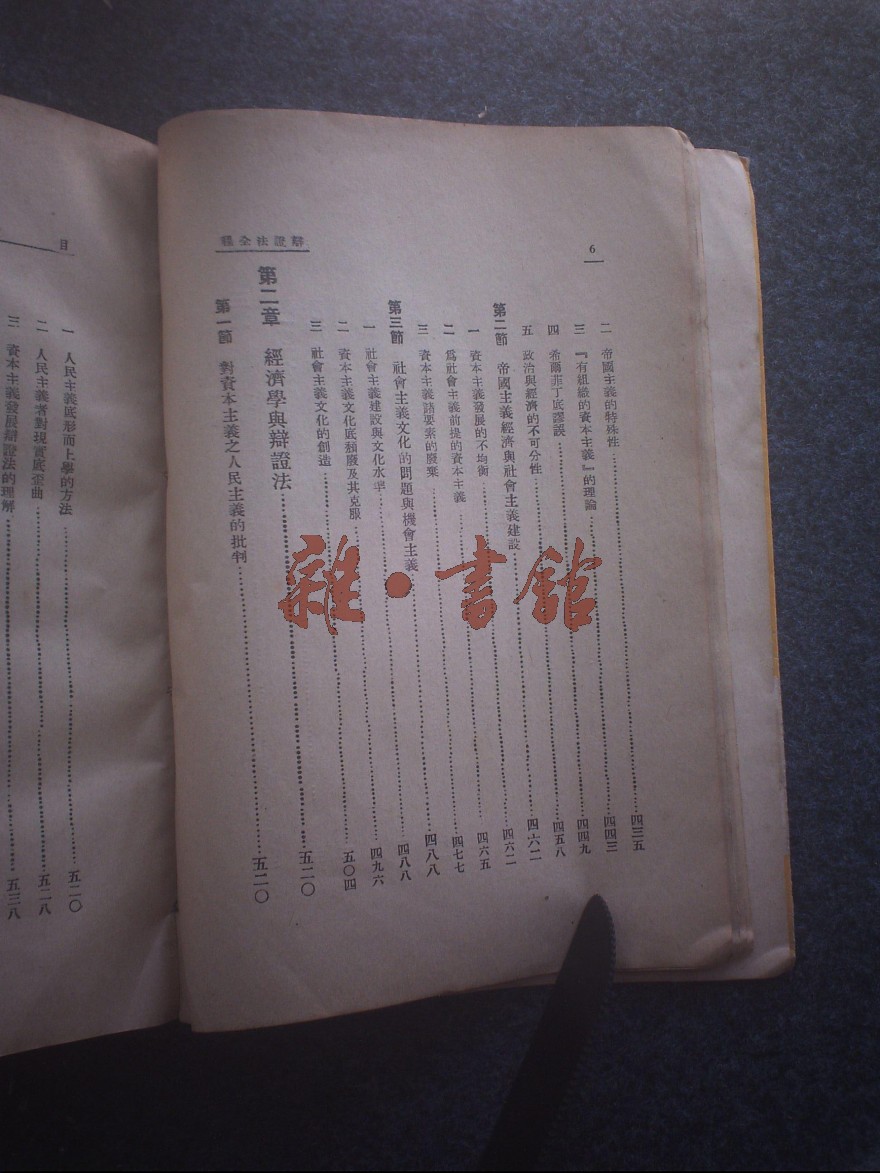 6
辯證法全程
二　帝國主義的特殊性…………四三五
三　『有組織的資本主義』的理論…………四四三
四　希爾菲丁底謬誤…………四四九
五　政治與經濟的不可分性…………四五八
第二節　帝國主義經濟與社會主義建設…………四六二
一　資本主義發展的不均衡…………四六二
二　為社會主義前提的資本主義…………四六五
三　資本主義諸要素的廢棄…………四七七
第三節　社會主義文化的問題與機會主義…………四八八
一　社會主義建設與文化水準…………四八八
二　資本主義文化底頹廢及其克服…………四九六
三　社會主義文化的創造…………五〇四
第二章　經濟學與辯證法…………五二〇
第一節　對資本主義之人民主義的批判…………五二〇
目
一　人民主義底形而上學的方法…………五二〇
二　人民主義者對現實底歪曲…………五二八
三　資本主義發展辯證法的理解…………五三八
雜·書館